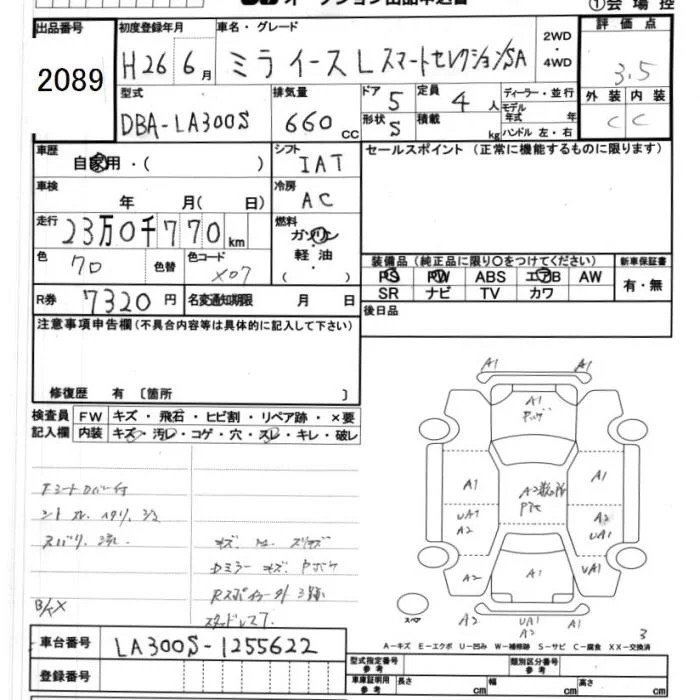 オークション出品申込書
①会場控
出品番号
2089
初度登録年月
H26年6月
車名・グレード
ミライース L スマートセレクション/SA
2WD
・
4WD
評価点
3.5
外装 内装
C C
型式
DBA-LA300S
排気量
660cc
ドア 5
形状 5
定員 4人
積載 kg
ディーラー・並行
モデル年式 年
ハンドル 左・右
車歴
自家用・( )
シフト
IAT
セールスポイント (正常に機能するものに限ります)
車検
年 月( 日)
冷房
AC
走行
23万0千770km
燃料
ガソリン
・
軽油
( )
色
70
色替
色コード
X07
R券 7320円
名変通知期限 月 日
装備品 (純正品に限り○をつけてください)
PS PW ABS エアB AW
SR ナビ TV カワ
新車保証書
有・無
後日品
注意事項申告欄(不具合内容等は具体的に記入して下さい)
修復歴 有 〔箇所 〕
検査員記入欄
FW キズ・飛石・ヒビ割・リペア跡・×要
内装 キズ・汚レ・コゲ・穴・スレ・キレ・破レ
キズ
Dミラー キズ
B/X
A1 A1
A1
A1 A1
UA1 A2
A2
A2 UA1
A2 UA1
A1
A2 UA1
A2
スペア
3
A-キズ E-エクボ U-凹み W-補修跡 S-サビ C-腐食 XX-交換済
車台番号
LA300S-1255622
登録番号
型式指定番号 参考
類別区分番号 参考
車庫証明用 参考
長さ cm 幅 cm 高さ cm